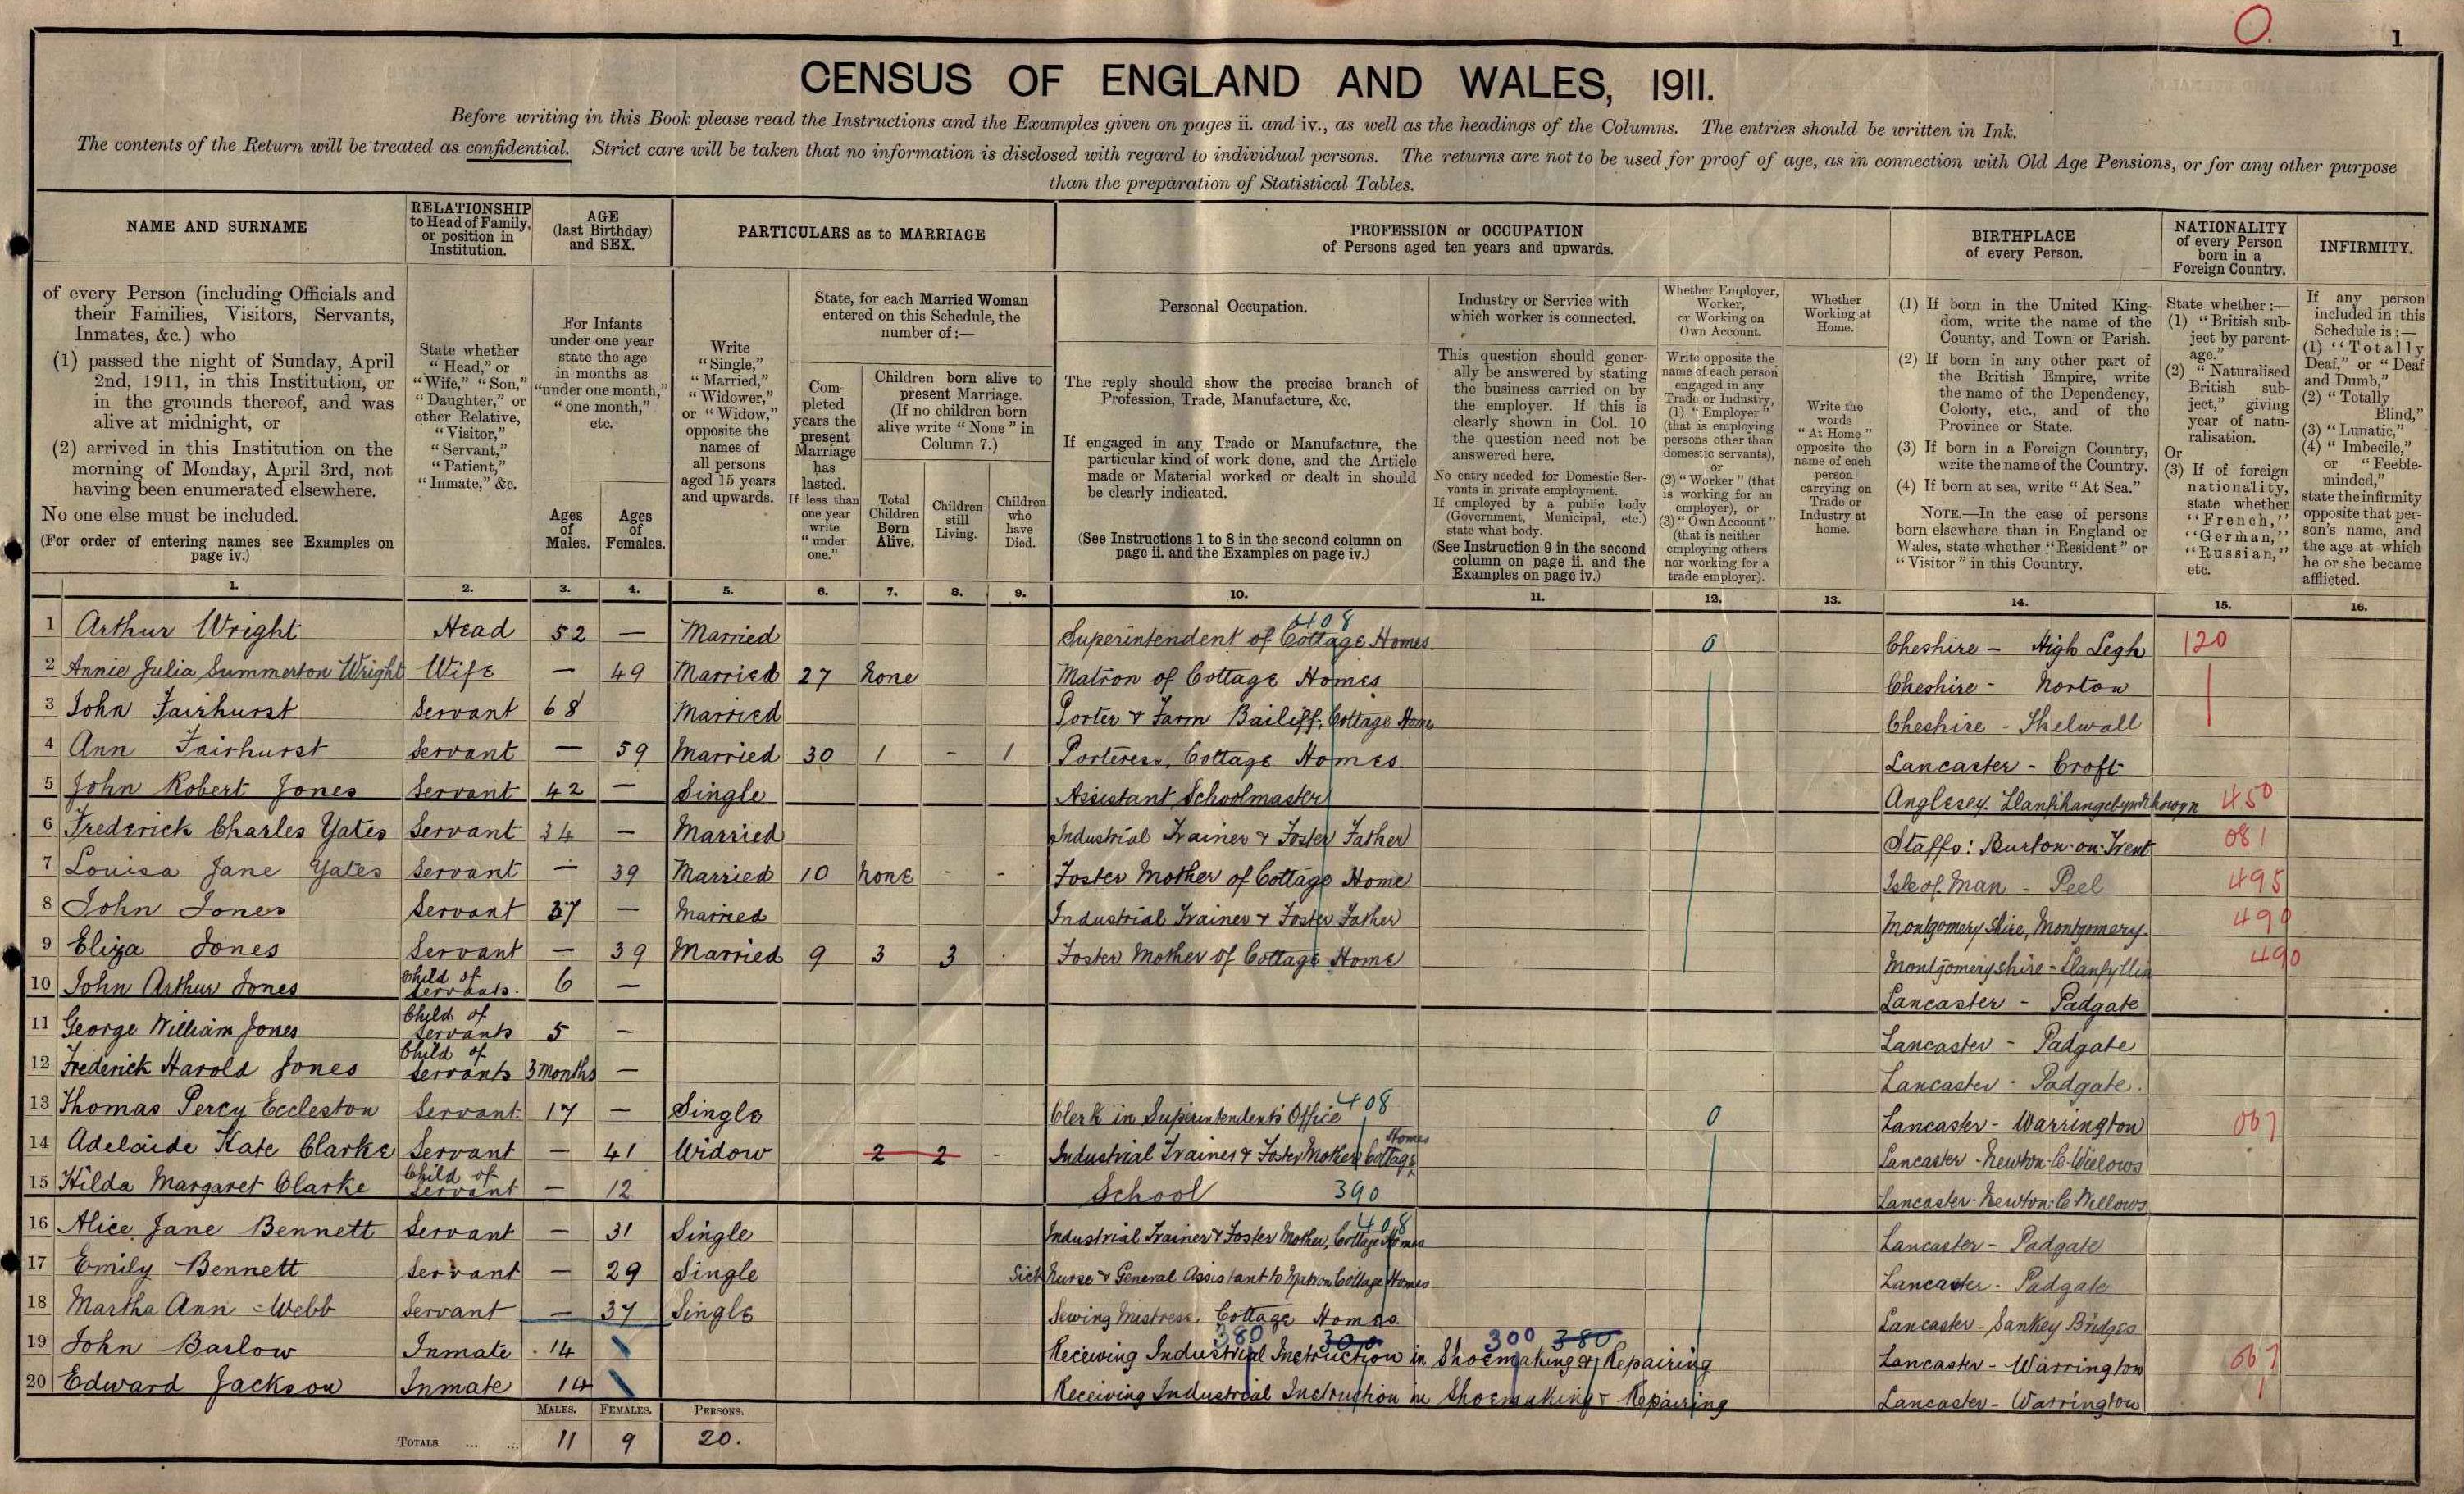 O.
1
CENSUS OF ENGLAND AND WALES, 1911.
Before writing in this Book please read the Instructions and the Examples given on pages ii. and iv., as well as the headings of the Columns. The entries should be written in Ink.
The contents of the Return will be treated as confidential. Strict care will be taken that no information is disclosed with regard to individual persons. The returns are not to be used for proof of age, as in connection with Old Age Pensions, or for any other purpose
than the preparation of Statistical Tables.
NAME AND SURNAME
of every Person (including Officials and
their Families, Visitors, Servants,
Inmates, &c.) who
(1) passed the night of Sunday, April
2nd, 1911, in this Institution, or
in the grounds thereof, and was
alive at midnight, or
(2) arrived in this Institution on the
morning of Monday, April 3rd, not
having been enumerated elsewhere.
No one else must be included.
(For order of entering names see Examples on
page iv.)
RELATIONSHIP
to Head of Family,
or position in
Institution.
State whether
"Head," or
"Wife," "Son,"
"Daughter," or
other Relative,
"Visitor,"
"Servant,"
"Patient,"
"Inmate," &c.
AGE
(last Birthday)
and SEX.
For Infants
under one year
state the age
in months as
"under one month,"
"one month,"
etc.
Ages
of
Males.
Ages
of
Females.
PARTICULARS as to MARRIAGE
Write
"Single,"
"Married,"
"Widower,"
or "Widow,"
opposite the
names of
all persons
aged 15 years
and upwards.
State, for each Married Woman
entered on this Schedule, the
number of:—
Com-
pleted
years the
present
Marriage
has
lasted.
If less than
one year
write
"under
one."
Children born alive to
present Marriage.
(If no children born
alive write "None" in
Column 7.)
Total
Children
Born
Alive.
Children
still
Living.
Children
who
have
Died.
PROFESSION or OCCUPATION
of Persons aged ten years and upwards.
Personal Occupation.
The reply should show the precise branch of
Profession, Trade, Manufacture, &c.
If engaged in any Trade or Manufacture, the
particular kind of work done, and the Article
made or Material worked or dealt in should
be clearly indicated.
(See Instructions 1 to 8 in the second column on
page ii. and the Examples on page iv.)
Industry or Service with
which worker is connected.
This question should gener-
ally be answered by stating
the business carried on by
the employer. If this is
clearly shown in Col. 10
the question need not be
answered here.
No entry needed for Domestic Ser-
vants in private employment.
If employed by a public body
(Government, Municipal, etc.)
state what body.
(See Instruction 9 in the second
column on page ii. and the
Examples on page iv.)
Whether Employer,
Worker,
or Working on
Own Account.
Write opposite the
name of each person
engaged in any
Trade or Industry,
(1) "Employer"
(that is employing
persons other than
domestic servants),
or
(2) "Worker" (that
is working for an
employer), or
(3) "Own Account"
(that is neither
employing others
nor working for a
trade employer).
Whether
Working at
Home.
Write the
words
"At Home"
opposite the
name of each
person
carrying on
Trade or
Industry at
home.
BIRTHPLACE
of every Person.
(1) If born in the United King-
dom, write the name of the
County, and Town or Parish.
(2) If born in any other part of
the British Empire, write
the name of the Dependency,
Colony, etc., and of the
Province or State.
(3) If born in a Foreign Country,
write the name of the Country.
(4) If born at sea, write "At Sea."
NOTE.—In the case of persons
born elsewhere than in England or
Wales, state whether "Resident" or
"Visitor" in this Country.
NATIONALITY
of every Person
born in a
Foreign Country.
State whether:—
(1) "British sub-
ject by parent-
age."
(2) "Naturalised
British sub-
ject," giving
year of natu-
ralisation.
Or
(3) If of foreign
nationality,
state whether
"French,"
"German,"
"Russian,"
etc.
INFIRMITY.
If any person
included in this
Schedule is:—
(1) "Totally
Deaf," or "Deaf
and Dumb,"
(2) "Totally
Blind,"
(3) "Lunatic,"
(4) "Imbecile,"
or "Feeble-
minded,"
state the infirmity
opposite that per-
son's name, and
the age at which
he or she became
afflicted.
1. 2. 3. 4. 5. 6. 7. 8. 9. 10. 11. 12. 13. 14. 15. 16.
408
1 Arthur Wright Head 52 — Married Superintendent of Cottage Homes. 0 Cheshire — High Legh 120
2 Annie Julia Summerton Wright Wife — 49 Married 27 None Matron of Cottage Homes Cheshire - Norton
3 John Fairhurst Servant 68 Married Porter & Farm Bailiff, Cottage Home Cheshire - Thelwall
4 Ann Fairhurst Servant — 59 Married 30 1 - 1 Porteress, Cottage Homes. Lancaster - Croft
5 John Robert Jones Servant 42 — Single Assistant Schoolmaster Anglesey. 450
6 Frederick Charles Yates Servant 34 — Married Industrial Trainer & Foster Father Staffs: Burton-on-Trent 081
7 Louisa Jane Yates Servant — 39 Married 10 None - - Foster Mother of Cottage Home Isle of Man - Peel 495
8 John Jones Servant 37 — Married Industrial Trainer & Foster Father Montgomeryshire, Montgomery. 490
9 Eliza Jones Servant — 39 Married 9 3 3 . Foster Mother of Cottage Home Montgomeryshire - Llanfyllin 490
10 John Arthur Jones Child of Servants. 6 — Lancaster - Padgate
11 George William Jones Child of Servants 5 — Lancaster - Padgate
12 Frederick Harold Jones Child of Servants 3 Months — Lancaster - Padgate.
13 Thomas Percy Eccleston Servant. 17 — Single Clerk in Superintendent's Office 408 0 Lancaster - Warrington 067
14 Adelaide Kate Clarke Servant — 41 Widow 2 2 - Industrial Trainer & Foster Mother Cottage Homes Lancaster - Newton-le-Willows
15 Hilda Margaret Clarke Child of Servant — 12 School 390 Lancaster - Newton-le-Willows
408
16 Alice Jane Bennett Servant — 31 Single Industrial Trainer & Foster Mother, Cottage Homes Lancaster - Padgate
17 Emily Bennett Servant — 29 Single Sick Nurse & General Assistant to Matron Cottage Homes Lancaster - Padgate
18 Martha Ann Webb Servant — 37 Single Sewing Mistress. Cottage Homes. Lancaster - Sankey Bridges
380 300 300 380
19 John Barlow Inmate 14 Receiving Industrial Instruction in Shoemaking & Repairing Lancaster - Warrington 067
20 Edward Jackson Inmate 14 Receiving Industrial Instruction in Shoemaking & Repairing Lancaster - Warrington
MALES. FEMALES. PERSONS.
TOTALS ... ... 11 9 20.